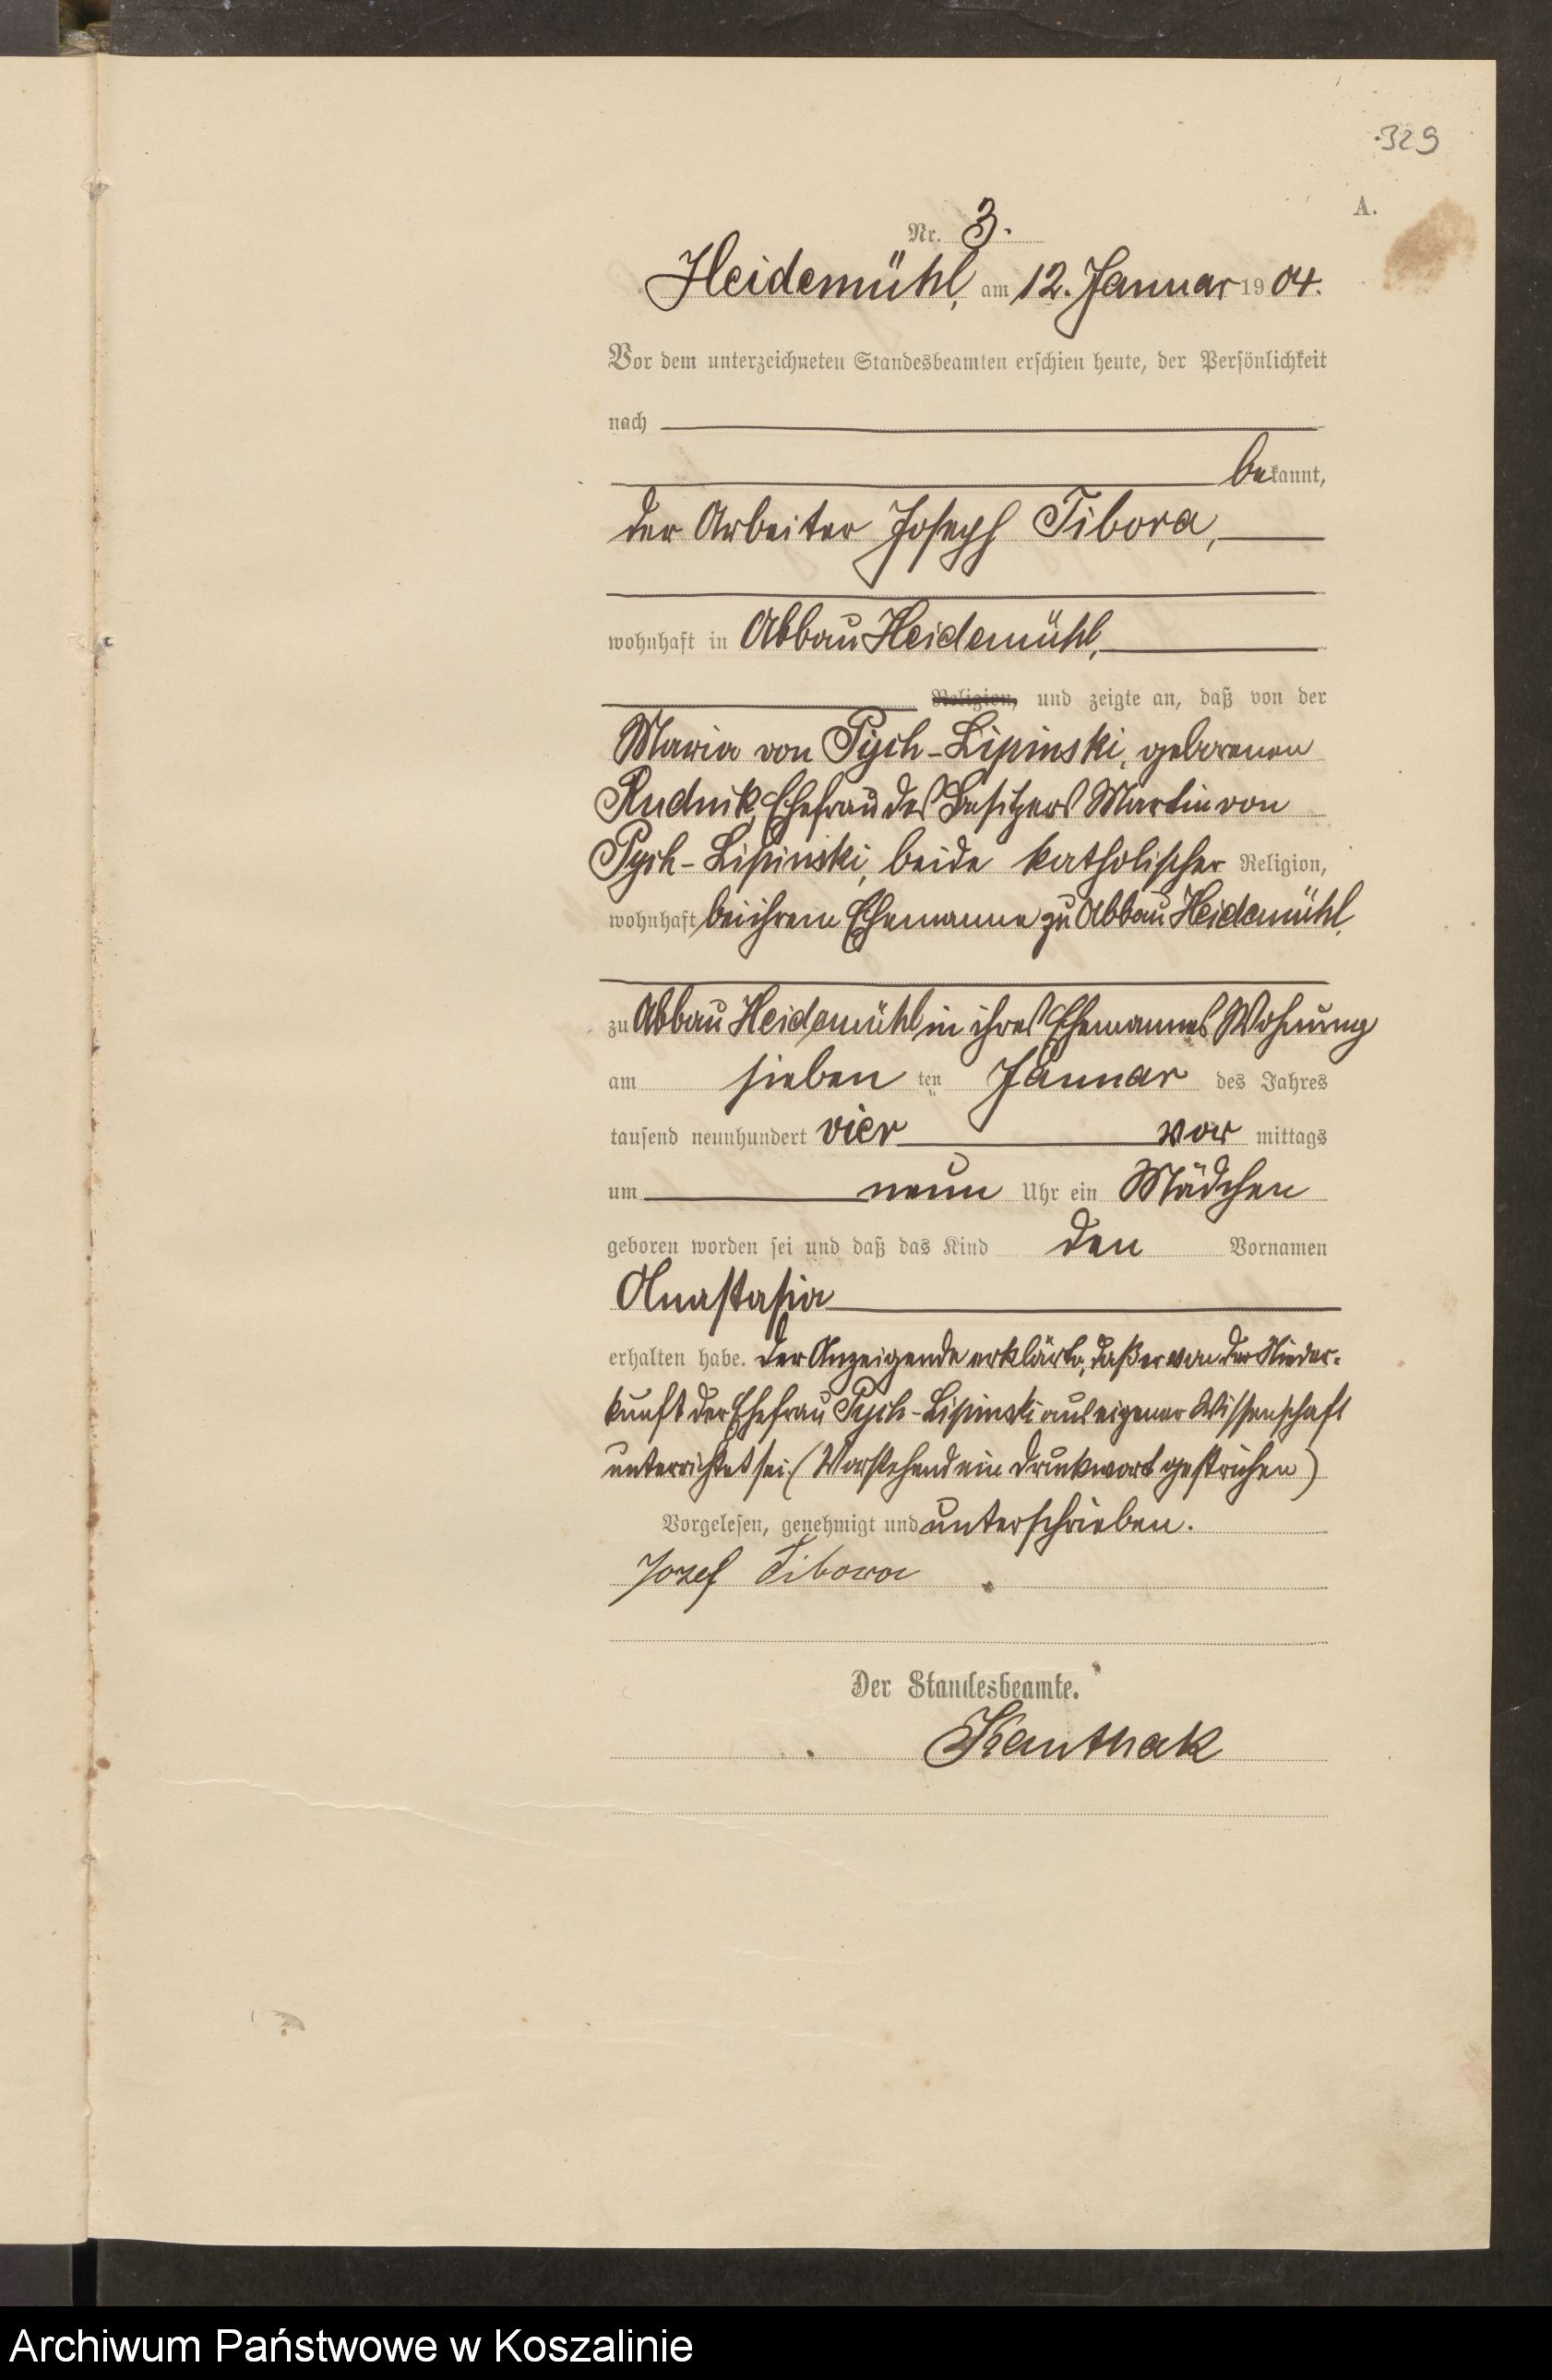 329
A.
Nr. 3.
Heidemühl, am 12. Januar 1904.
Vor dem unterzeichneten Standesbeamten erschien heute, der Persönlichkeit
nach
bekannt,
der Arbeiter Joseph Tibora,
wohnhaft in Abbau Heidemühl,
Religion, und zeigte an, daß von der
Maria von Pych-Lipinski, geborenen
Rudnik, Ehefrau des Besitzers Martin von
Pych-Lipinski, beide katholischer Religion,
wohnhaft bei ihrem Ehemanne zu Abbau Heidemühl,
zu Abbau Heidemühl in ihres Ehemannes Wohnung
am sieben ten Januar des Jahres
tausend neunhundert vier vor mittags
um neun Uhr ein Mädchen
geboren worden sei und daß das Kind den Vornamen
Anastasia
erhalten habe. Der Anzeigende erklärte, daß er von der Nieder-
kunft der Ehefrau Pych-Lipinski aus eigener Wissenschaft
unterrichtet sei. (Vorstehend ein Druckwort gestrichen)
Vorgelesen, genehmigt und unterschrieben.
Jozef Tibora
Der Standesbeamte.
Kanthak
Archiwum Państwowe w Koszalinie